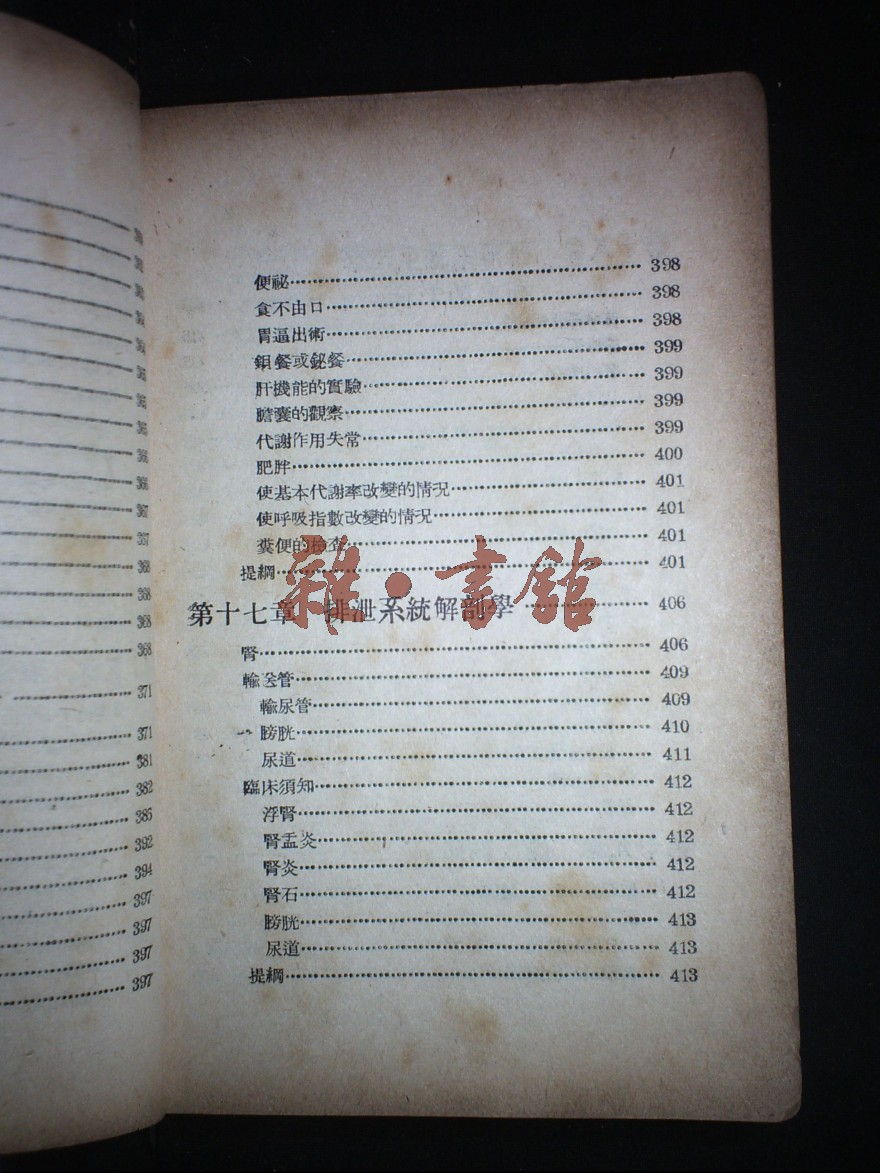 便祕 398
食不由口 398
胃逼出術 398
鋇餐或鉍餐 399
肝機能的實驗 399
膽囊的觀察 399
代謝作用失常 399
肥胖 400
使基本代謝率改變的情況 401
使呼吸指數改變的情況 401
糞便的檢查 401
提綱 401
第十七章 排泄系統解剖學 406
腎 406
輸送管 409
輸尿管 409
膀胱 410
尿道 411
臨床須知 412
浮腎 412
腎盂炎 412
腎炎 412
腎石 412
膀胱 413
尿道 413
提綱 413
雜·書館
368
371
371
381
382
385
392
394
397
397
397
397